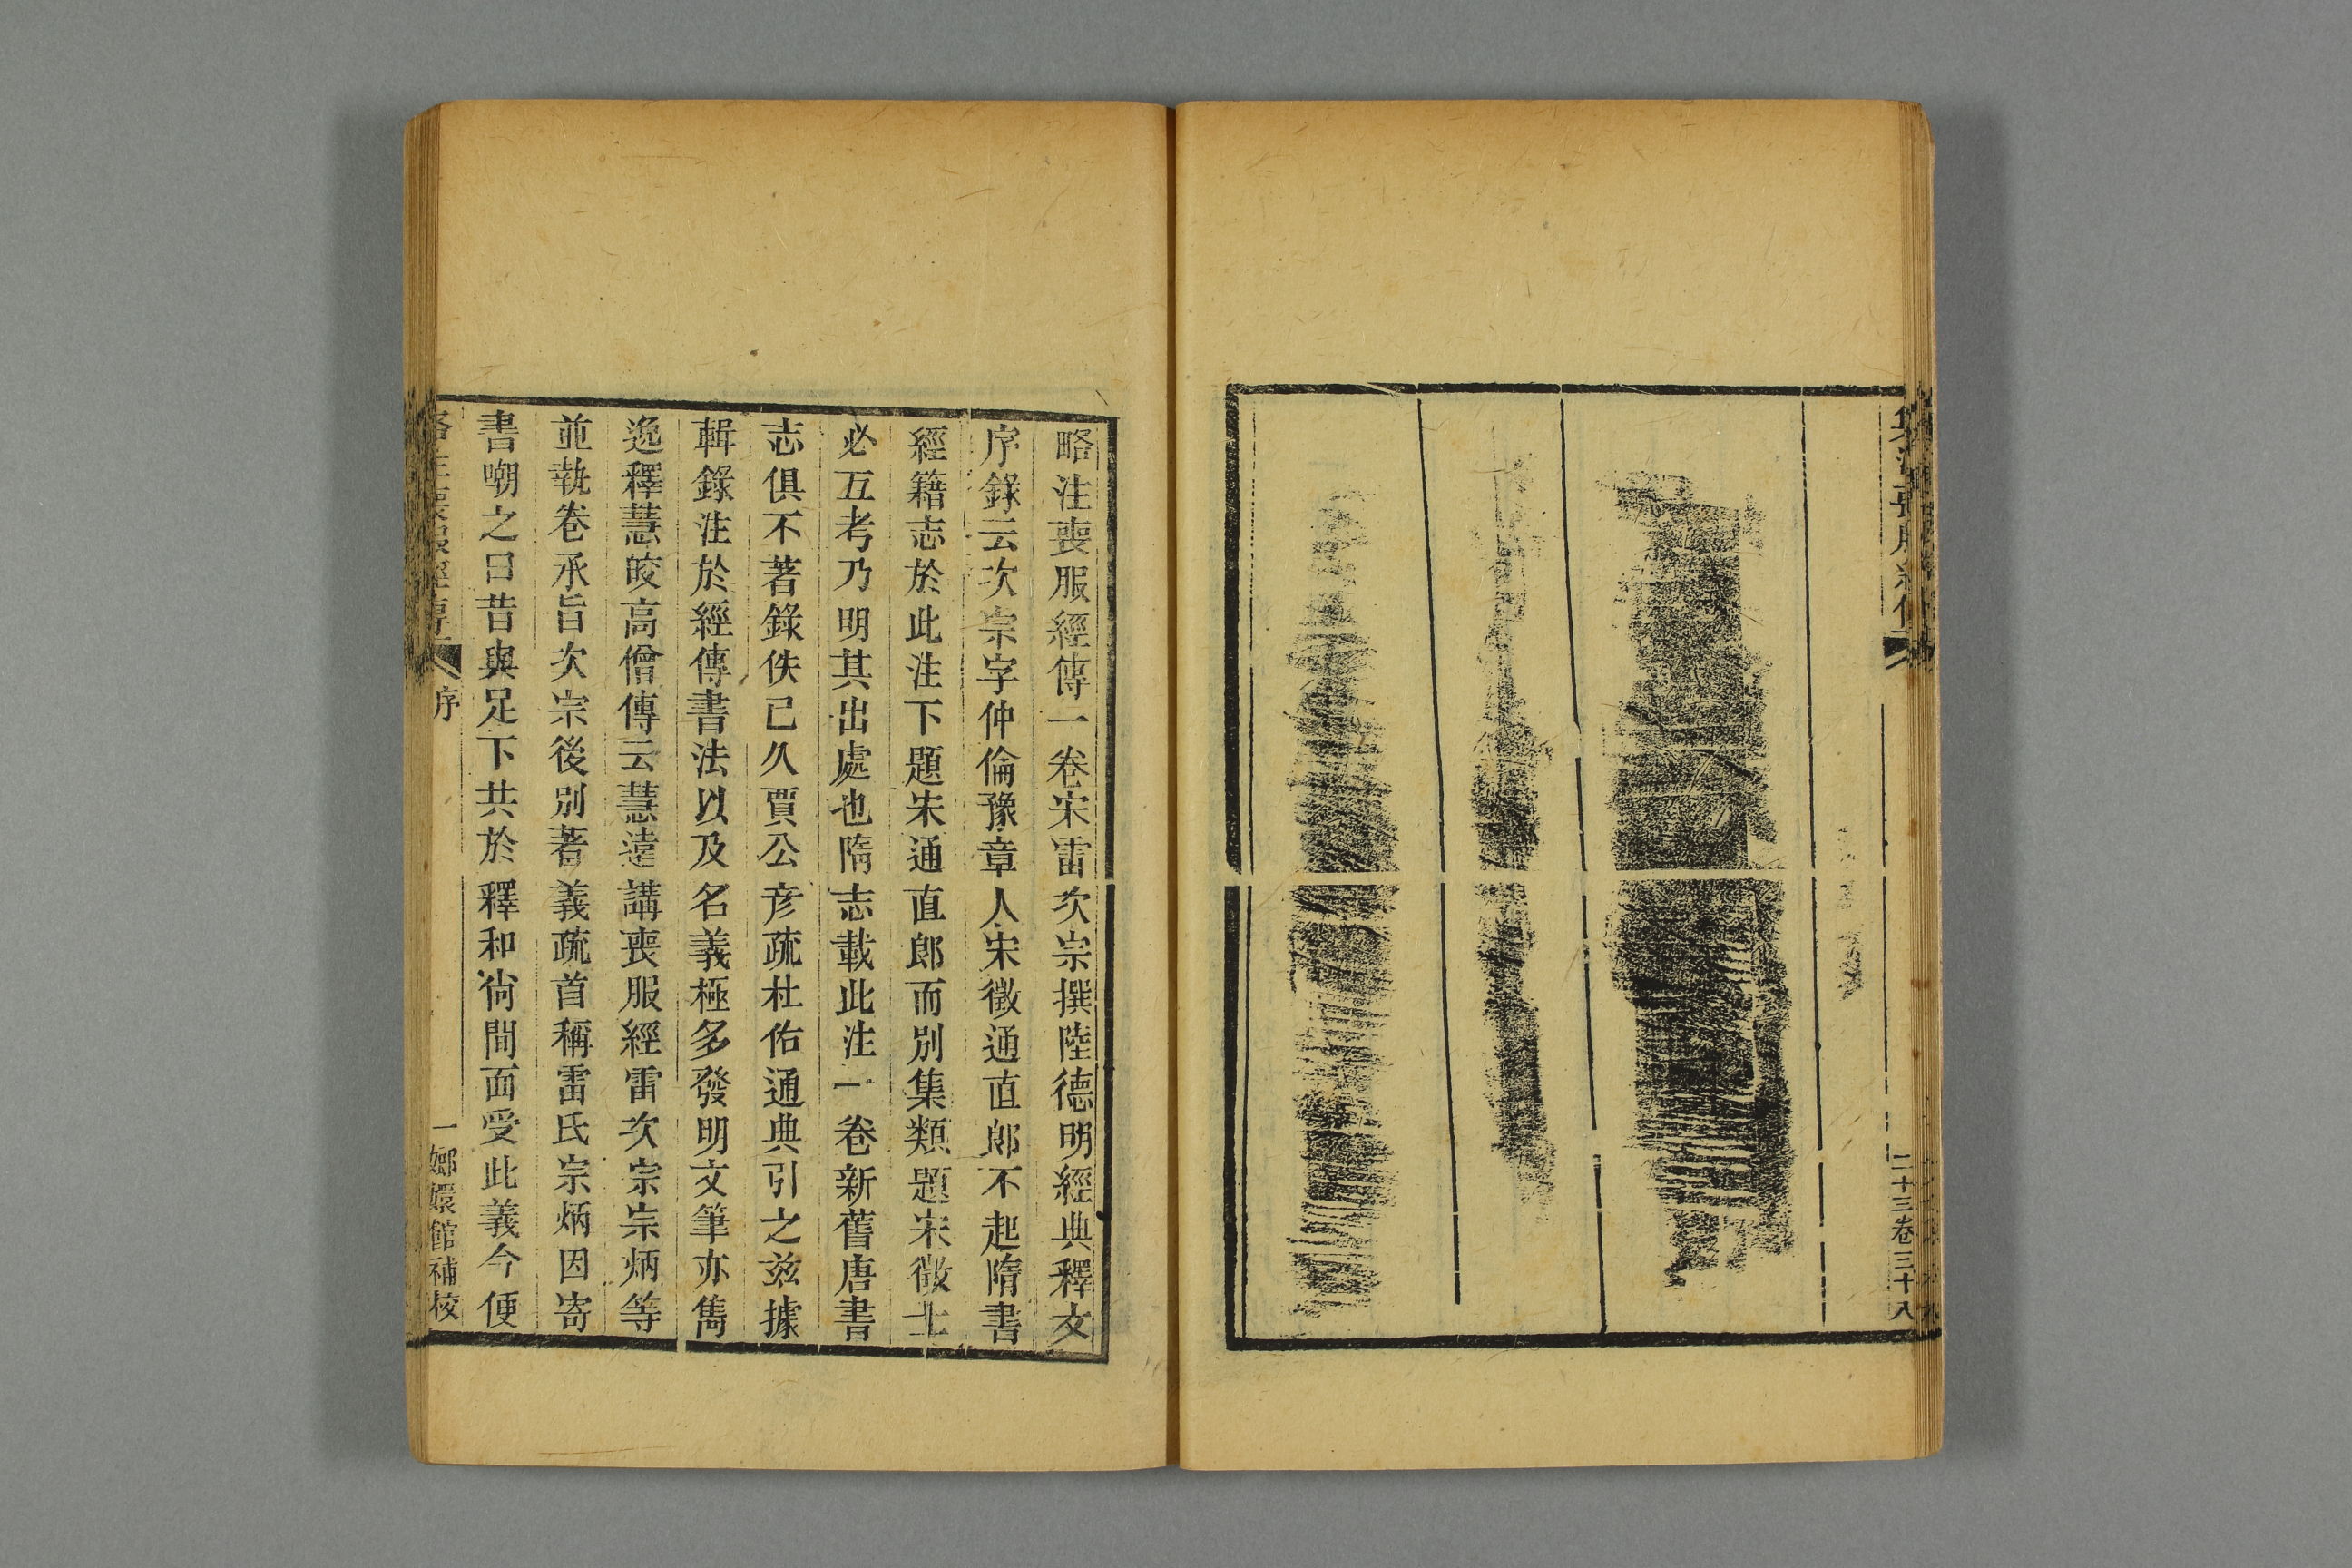 二十三卷三十八
略注喪服經傳一卷宋雷次宗撰陸德明經典釋文
序錄云次宗字仲倫豫章人宋徵通直郎不起隋書
經籍志於此注下題宋通直郎而別集類題宋徵士
必互考乃明其出處也隋志載此注一卷新舊唐書
志俱不著錄佚已久賈公彥疏杜佑通典引之兹據
輯錄注於經傳書法以及名義極多發明文筆亦雋
逸釋慧皎高僧傳云慧遠講喪服經雷次宗宗炳等
並執卷承旨次宗後別著義疏首稱雷氏宗炳因寄
書嘲之曰昔與足下共於釋和尙間面受此義今便
略注喪服經傳 序 一 嫏嬛館補校